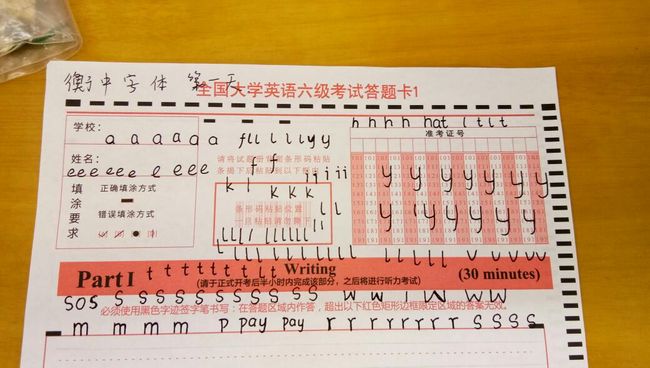 衡中字体 第一天
全国大学英语六级考试答题卡1
h h h h hat l t l t
学校:
a a a a a a a fll l l l yy
准考证号
姓名:
请将试题册背面条形码粘贴
条揭下后粘贴到以下框内
eeeeeee l eee
f f
填涂要求
正确填涂方式
错误填涂方式
k l k k k
y y y y y y y
条形码粘贴位置
y y y y y y y
llll llllll
l l l l l l l l l l l l l l l l l l l v v v v v
Part I t t t t t t t l t Writing (30 minutes)
(请于正式开考后半小时内完成该部分，之后将进行听力考试)
sos s s s s s s s s s s s w w w w w
必须使用黑色字迹签字笔书写：在答题区域内作答，超出以下红色矩形边框限定区域的答案无效。
m m m m m p pay pay r r r r r r r r s s s s